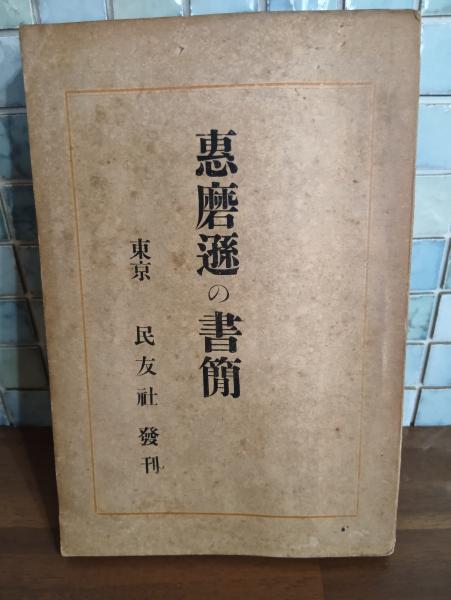 惠磨遜の書簡
東京 民友社 發刊